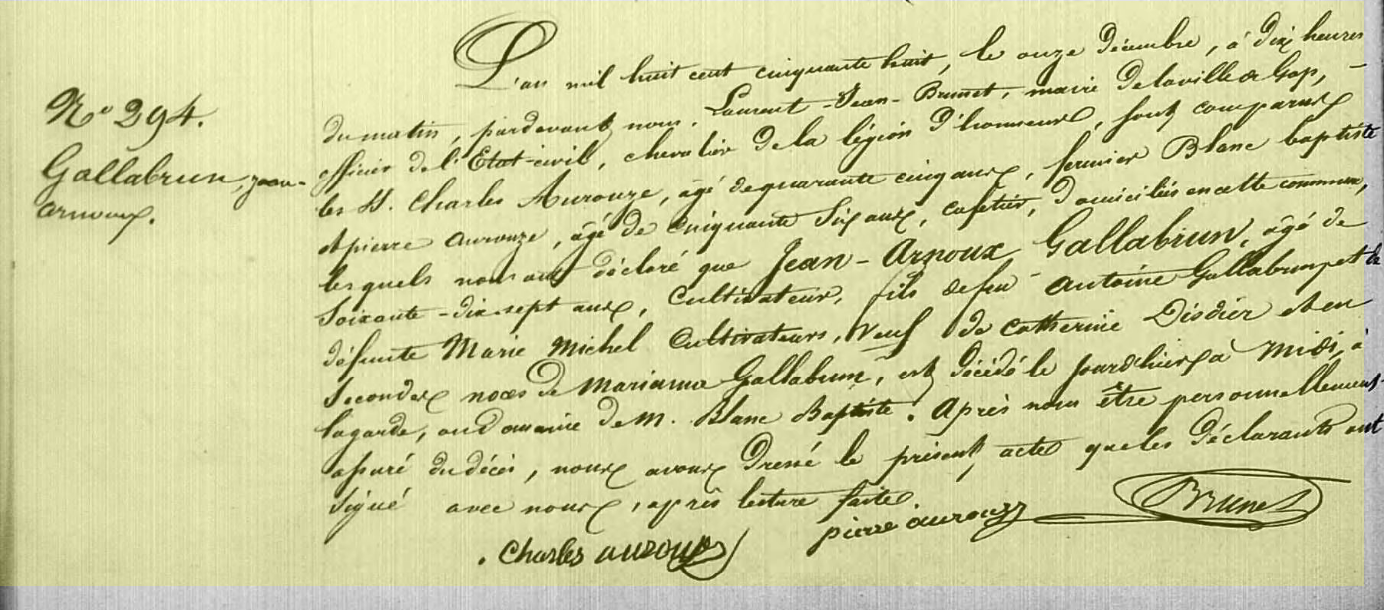 N° 294.
Gallabrun, jean-
arnoux.
L'an mil huit cent cinquante huit, le onze décembre, à dix heures
du matin, pardevant nous. Laurent-Jean-Brunet, maire de la ville de Gap,
officier de l'Etat-civil, chevalier de la légion d'honneur, sont comparus
les S. Charles Aurouze, âgé de quarante cinq ans, fermier Blanc baptiste
et pierre aurouze, âgé de cinquante six ans, cafetier, domiciliés en cette commune,
lesquels nous ont déclaré que Jean-Arnoux Gallabrun, âgé de
soixante-dix-sept ans, cultivateur, fils de feu antoine Gallabrun, et de
défunte Marie Michel cultivateurs, veuf de catherine Disdier et en
secondes noces de Marianne Gallabrun, est décédé le jourd'hier, à midi, à
lagarde, au domaine de m. Blanc Baptiste. Après nous être personnellement
assuré du décès, nous avons dressé le présent acte que les déclarants ont
signé avec nous, après lecture faite.
pierre aurouze Brunet
. Charles aurouze